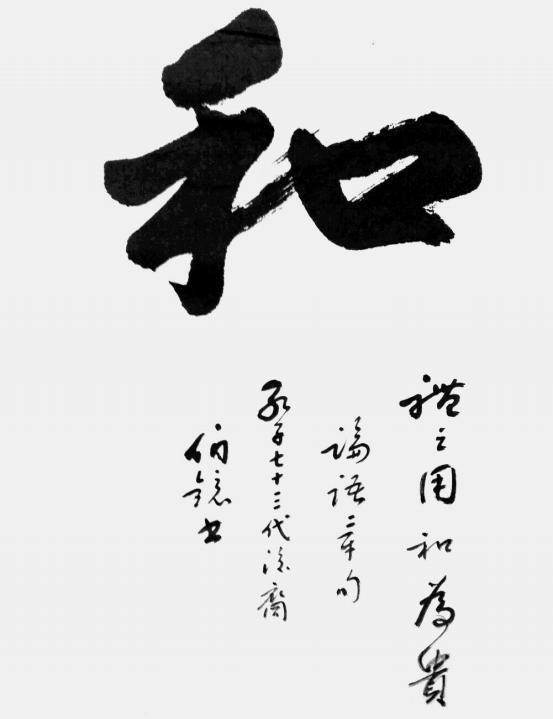 和
禮之用和為貴
論語二章句
孔子七十三代後裔
書